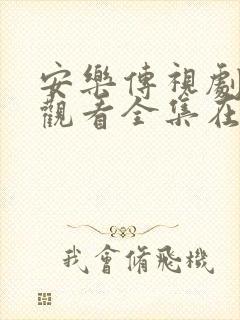 安樂傳視劇
觀看全集在
我會修飛機